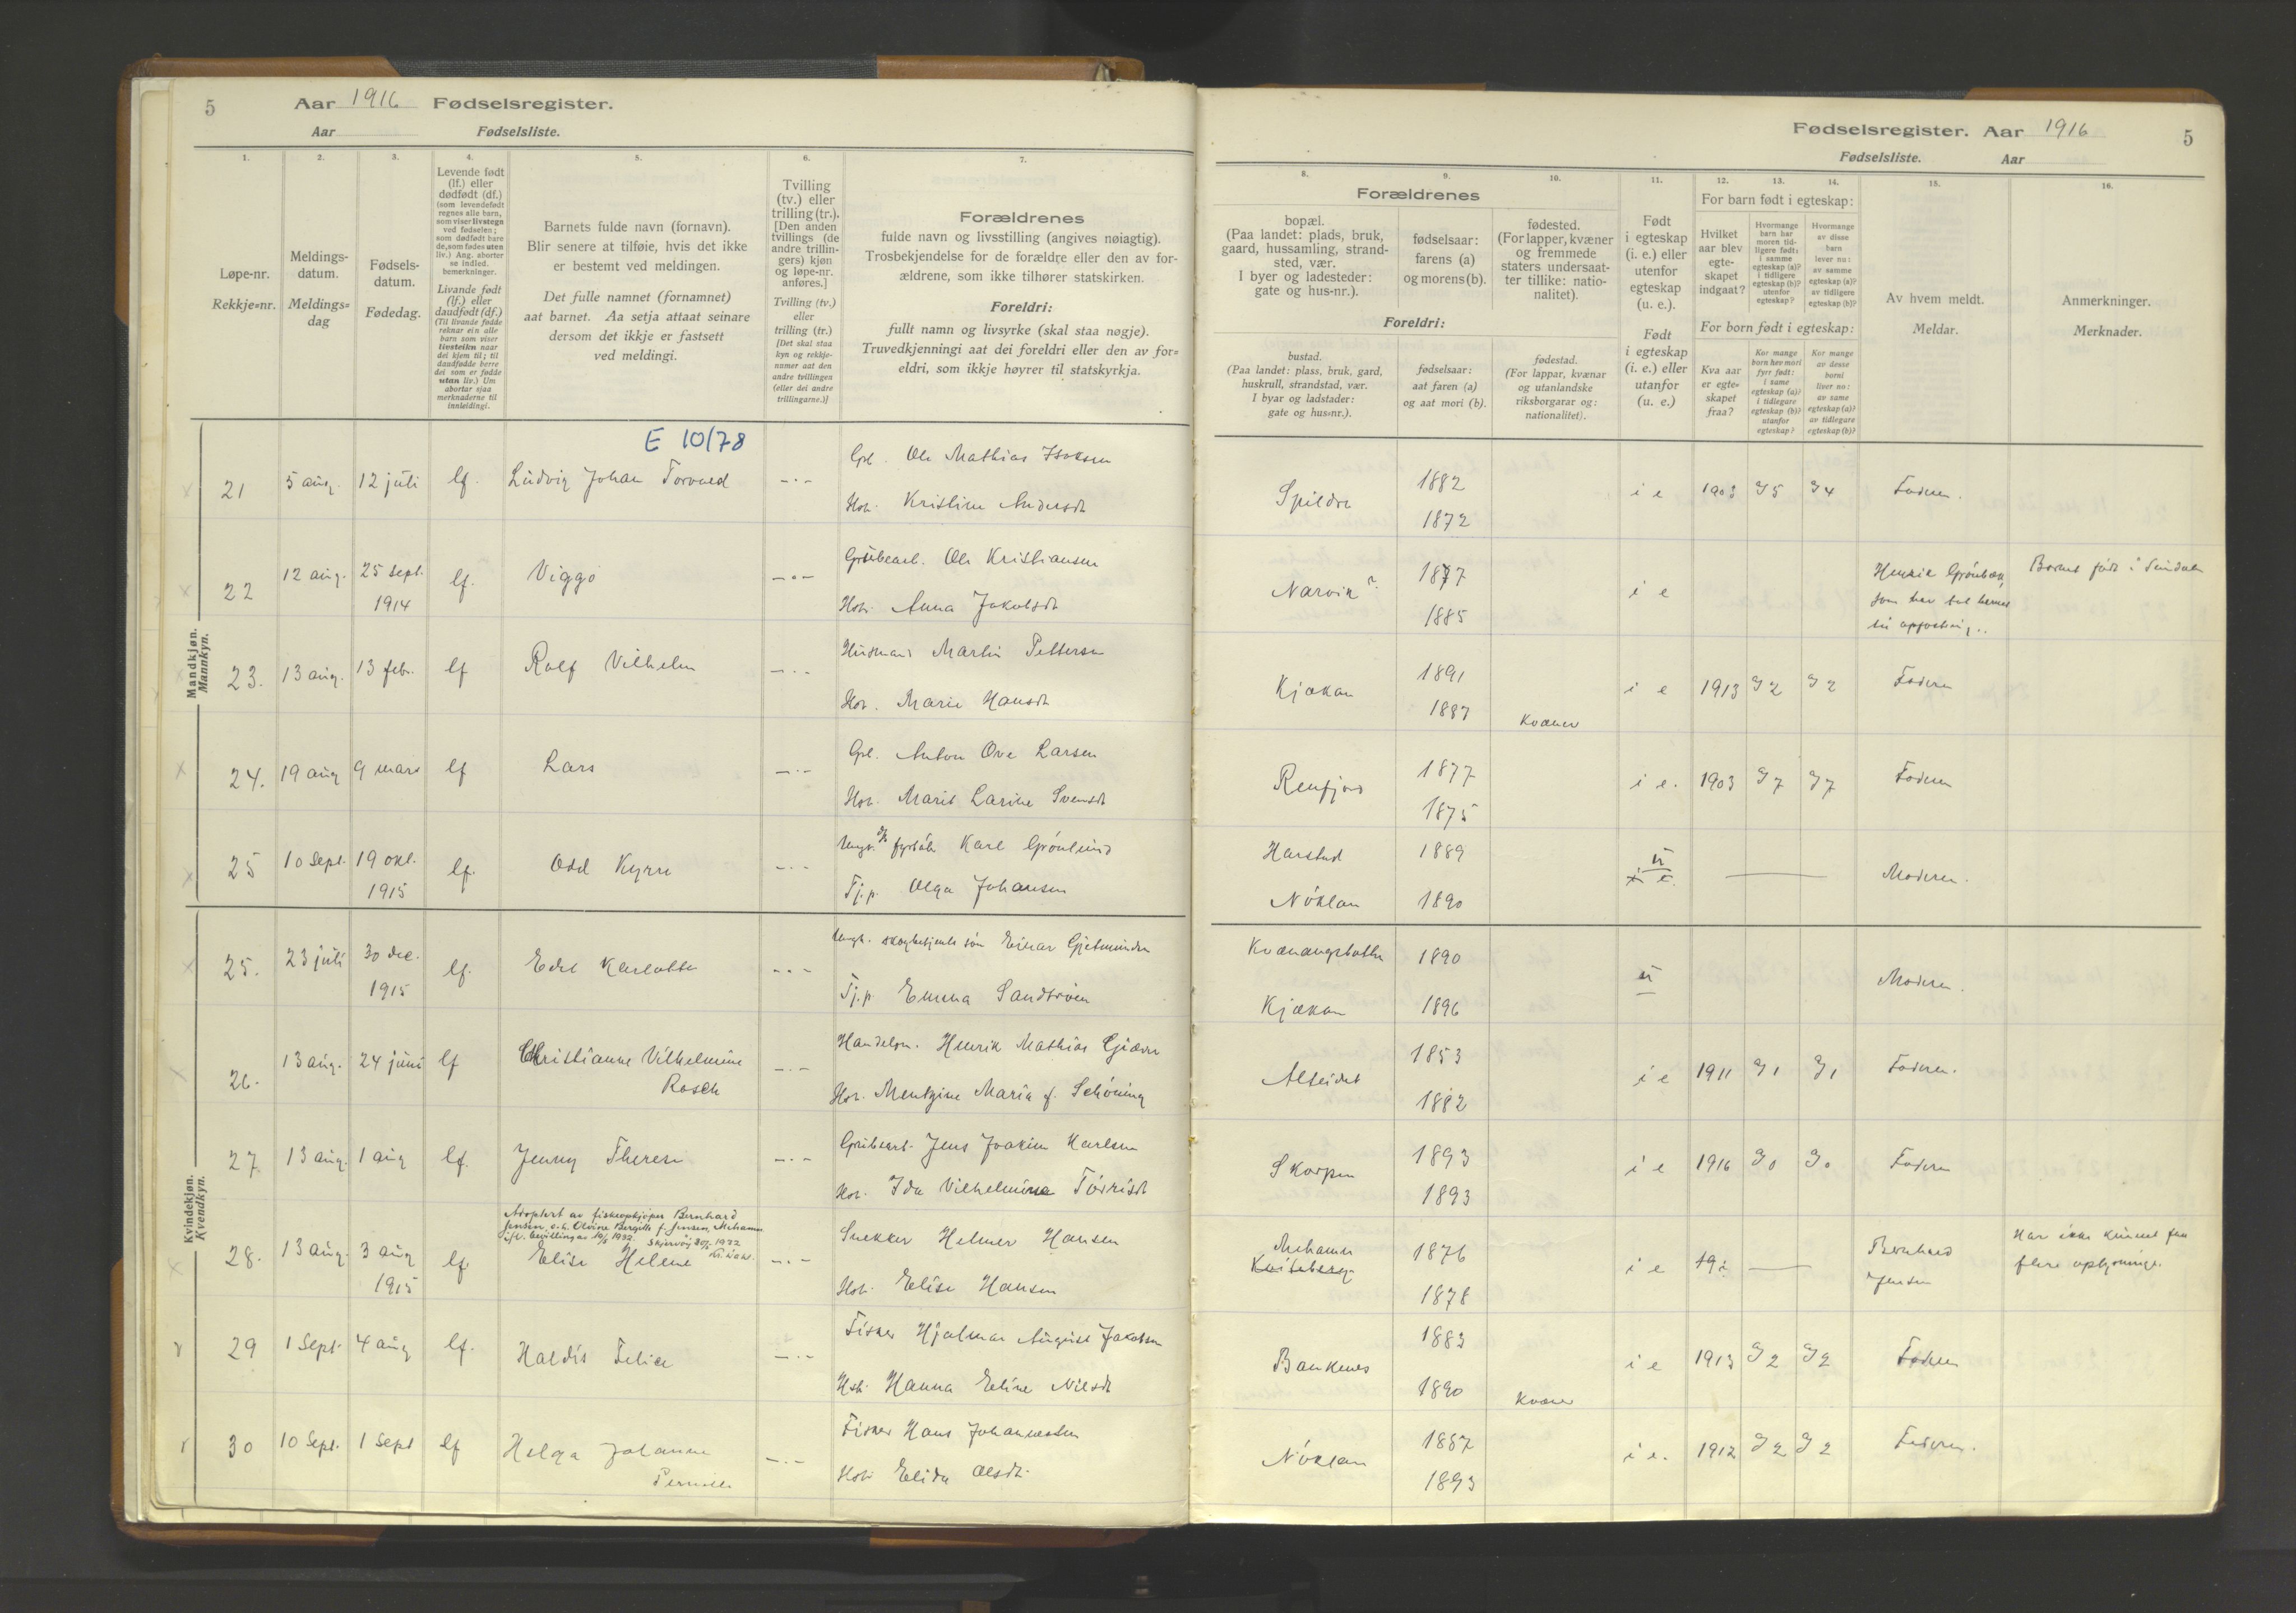 5 Aar 1916 Fødselsregister.
Aar Fødselsliste.
1. 2. 3. 4. 5. 6. 7.
Løpe-nr.
Rekkje=nr.
Meldings-
datum.
Meldings=
dag
Fødsels-
datum.
Fødedag.
Levende født
(lf.) eller
dødfødt (df.)
(som levendefødt
regnes alle barn,
som viser livstegn
ved fødselen;
som dødfødt bare
de, som fødes uten
liv.) Ang. aborter
se indled.
bemerkninger.
Livande født
(lf.) eller
daudfødt (df.)
(Til livande fødde
reknar ein alle
barn som viser
livsteikn naar
dei kjem til; til
daudfødde berre
dei som er fødde
utan liv.) Um
abortar sjaa
merknaderne til
innleidingi.
Barnets fulde navn (fornavn).
Blir senere at tilføie, hvis det ikke
er bestemt ved meldingen.
Det fulle namnet (fornamnet)
aat barnet. Aa setja attaat seinare
dersom det ikkje er fastsett
ved meldingi.
Tvilling
(tv.) eller
trilling (tr.).
[Den anden
tvillings (de
andre trillin-
gers) kjøn
og løpe-nr.
anføres.]
Tvilling (tv.)
eller
trilling (tr.)
[Det skal staa
kyn og rekkje-
numer aat den
andre tvillingen
(eller dei andre
trillingarne.)]
Forældrenes
fulde navn og livsstilling (angives nøiagtig).
Trosbekjendelse for de forældre eller den av for-
ældrene, som ikke tilhører statskirken.
Foreldri:
fullt namn og livsyrke (skal staa nøgje).
Truvedkjenningi aat dei foreldri eller den av for=
eldri, som ikkje høyrer til statskyrkja.
Mandkjøn.
Mannkyn.
E 10/78
21 5 aug. 12 juli lf. Ludvig Johan Torvald — . — Gbr. Ole Mathias Isaksen
Hstr. Kristine Andersdt
22 12 aug. 25 sept. lf. Viggo — . — Grubearb. Ole Kristiansen
1914 Hstr. Anna Jakobsdt
23. 13 aug. 13 febr. lf Rolf Vilhelm — . — Husmand Martin Pettersen
Hstr. Marie Hansdt
24. 19 aug 9 mars lf Lars — . — Anton Ove Larsen
Hstr. Marit Larine Svensdt
25 10 Sept. 19 okt. lf. Odd Kyrre — . — Ungk. Karl Grönlund
1915 Tj.p. Olga Johansen
Kvindekjøn.
Kvendkyn.
25. 23 juli 30 dec. lf. Edel Karlotte — . — Ungk. skogbetjents sön Einar Gjetmunden
1915 Tj.p Emma Sandtröen
26. 13 aug. 24 juni lf Christianne Vilhelmine — . — Handelsm. Henrik Mathias Gjæver
Rasch Hstr. Mentzine Maria f. Schöning
27 13 aug. 1 aug lf. Jenny Therese — . — Grubearb. Jens Joakim Karlsen
Hstr. Ida Vilhelmine
Adoptert av fiskeopkjöper Bernhard
Jensen o.h. Olvine Bergitte f. Jensen, Mehamn
ifl. bevilling av 10/5 1932. Skjervøy 30/5 1932
28. 13 aug. 3 aug lf. Elise Helene — . — Snekker Helmer Hansen
1915 Hstr. Elise Hansen
29 1 Sept. 4 aug lf. Haldis Felice — . — Fisker Hjalmar August Jakobsen
Hstr. Hanna Eline Nilsdt
30 10 Sept. 1 Sept lf Helga Johanne — . — Fisker Hans Johannessen
Pernille Hstr Elida Olsdt.
Fødselsregister. Aar 1916 5
Fødselsliste. Aar
8. 9. 10. 11. 12. 13. 14. 15. 16.
Forældrenes
bopæl.
(Paa landet: plads, bruk,
gaard, hussamling, strand-
sted, vær.
I byer og ladesteder:
gate og hus-nr.).
fødselsaar:
farens (a)
og morens (b).
fødested.
(For lapper, kvæner
og fremmede
staters undersaat-
ter tillike: natio-
nalitet).
Foreldri:
bustad.
(Paa landet: plass, bruk, gard,
huskrull, strandstad, vær.
I byar og ladstader:
gate og hus=nr.).
fødselsaar:
aat faren (a)
og aat mori (b).
fødestad.
(For lappar, kvænar
og utanlandske
riksborgarar og:
nationalitet).
Født
i egteskap
(i. e.) eller
utenfor
egteskap
(u. e.).
Født
i egteskap
(i. e.) eller
utanfor
(u. e.)
For barn født i egteskap:
Hvilket
aar blev
egte-
skapet
indgaat?
Hvormange
barn har
moren tid-
ligere født:
i samme
egteskap (a)?
i tidligere
egteskap (b)?
utenfor
egteskap?
Hvormange
av disse
barn
lever nu:
av samme
egteskap (a)?
av tidligere
egteskap (b)?
For born født i egteskap:
Kva aar
er egte=
skapet
fraa?
Kor mange
born hev mori
fyrr født:
i same
egteskap (a)?
i tidlegare
egteskap (b)?
utanfor
egteskap?
Kor mange
av desse
borni
liver no:
av same
egteskap (a)?
av tidlegare
egteskap (b)?
Av hvem meldt.
Meldar.
Anmerkninger.
Merknader.
Spildra 1882 i e 5 4 Faderen.
1872
Narvik? 1877 i e Henrik Grönbæk, Barnet født i
1885 som har tat barnet
til opfostring.
Kjækan 1891 i e 1913 2 2 Faderen
1887 Kvæner
Renfjord 1877 i e. 1903 7 7 Faderen
1875
Harstad 1889 u Moderen.
Nöklan 1890 i e.
Kvænangsbotn 1890 u Moderen.
Kjækan 1896
Alteidet 1853 i e 1911 1 1 Faderen.
1882
Skorpen 1893 i e 1916 0 0 Faderen
1893
Mehamn 1876 i e 19 Bernhard Har ikke kunnet faa
1878 Jensen flere oplysninger.
Bankenes 1883 i e 1913 2 2 Faderen
1890 Kvæner
Nöklan 1887 i e. 1912 2 2 Faderen.
1893